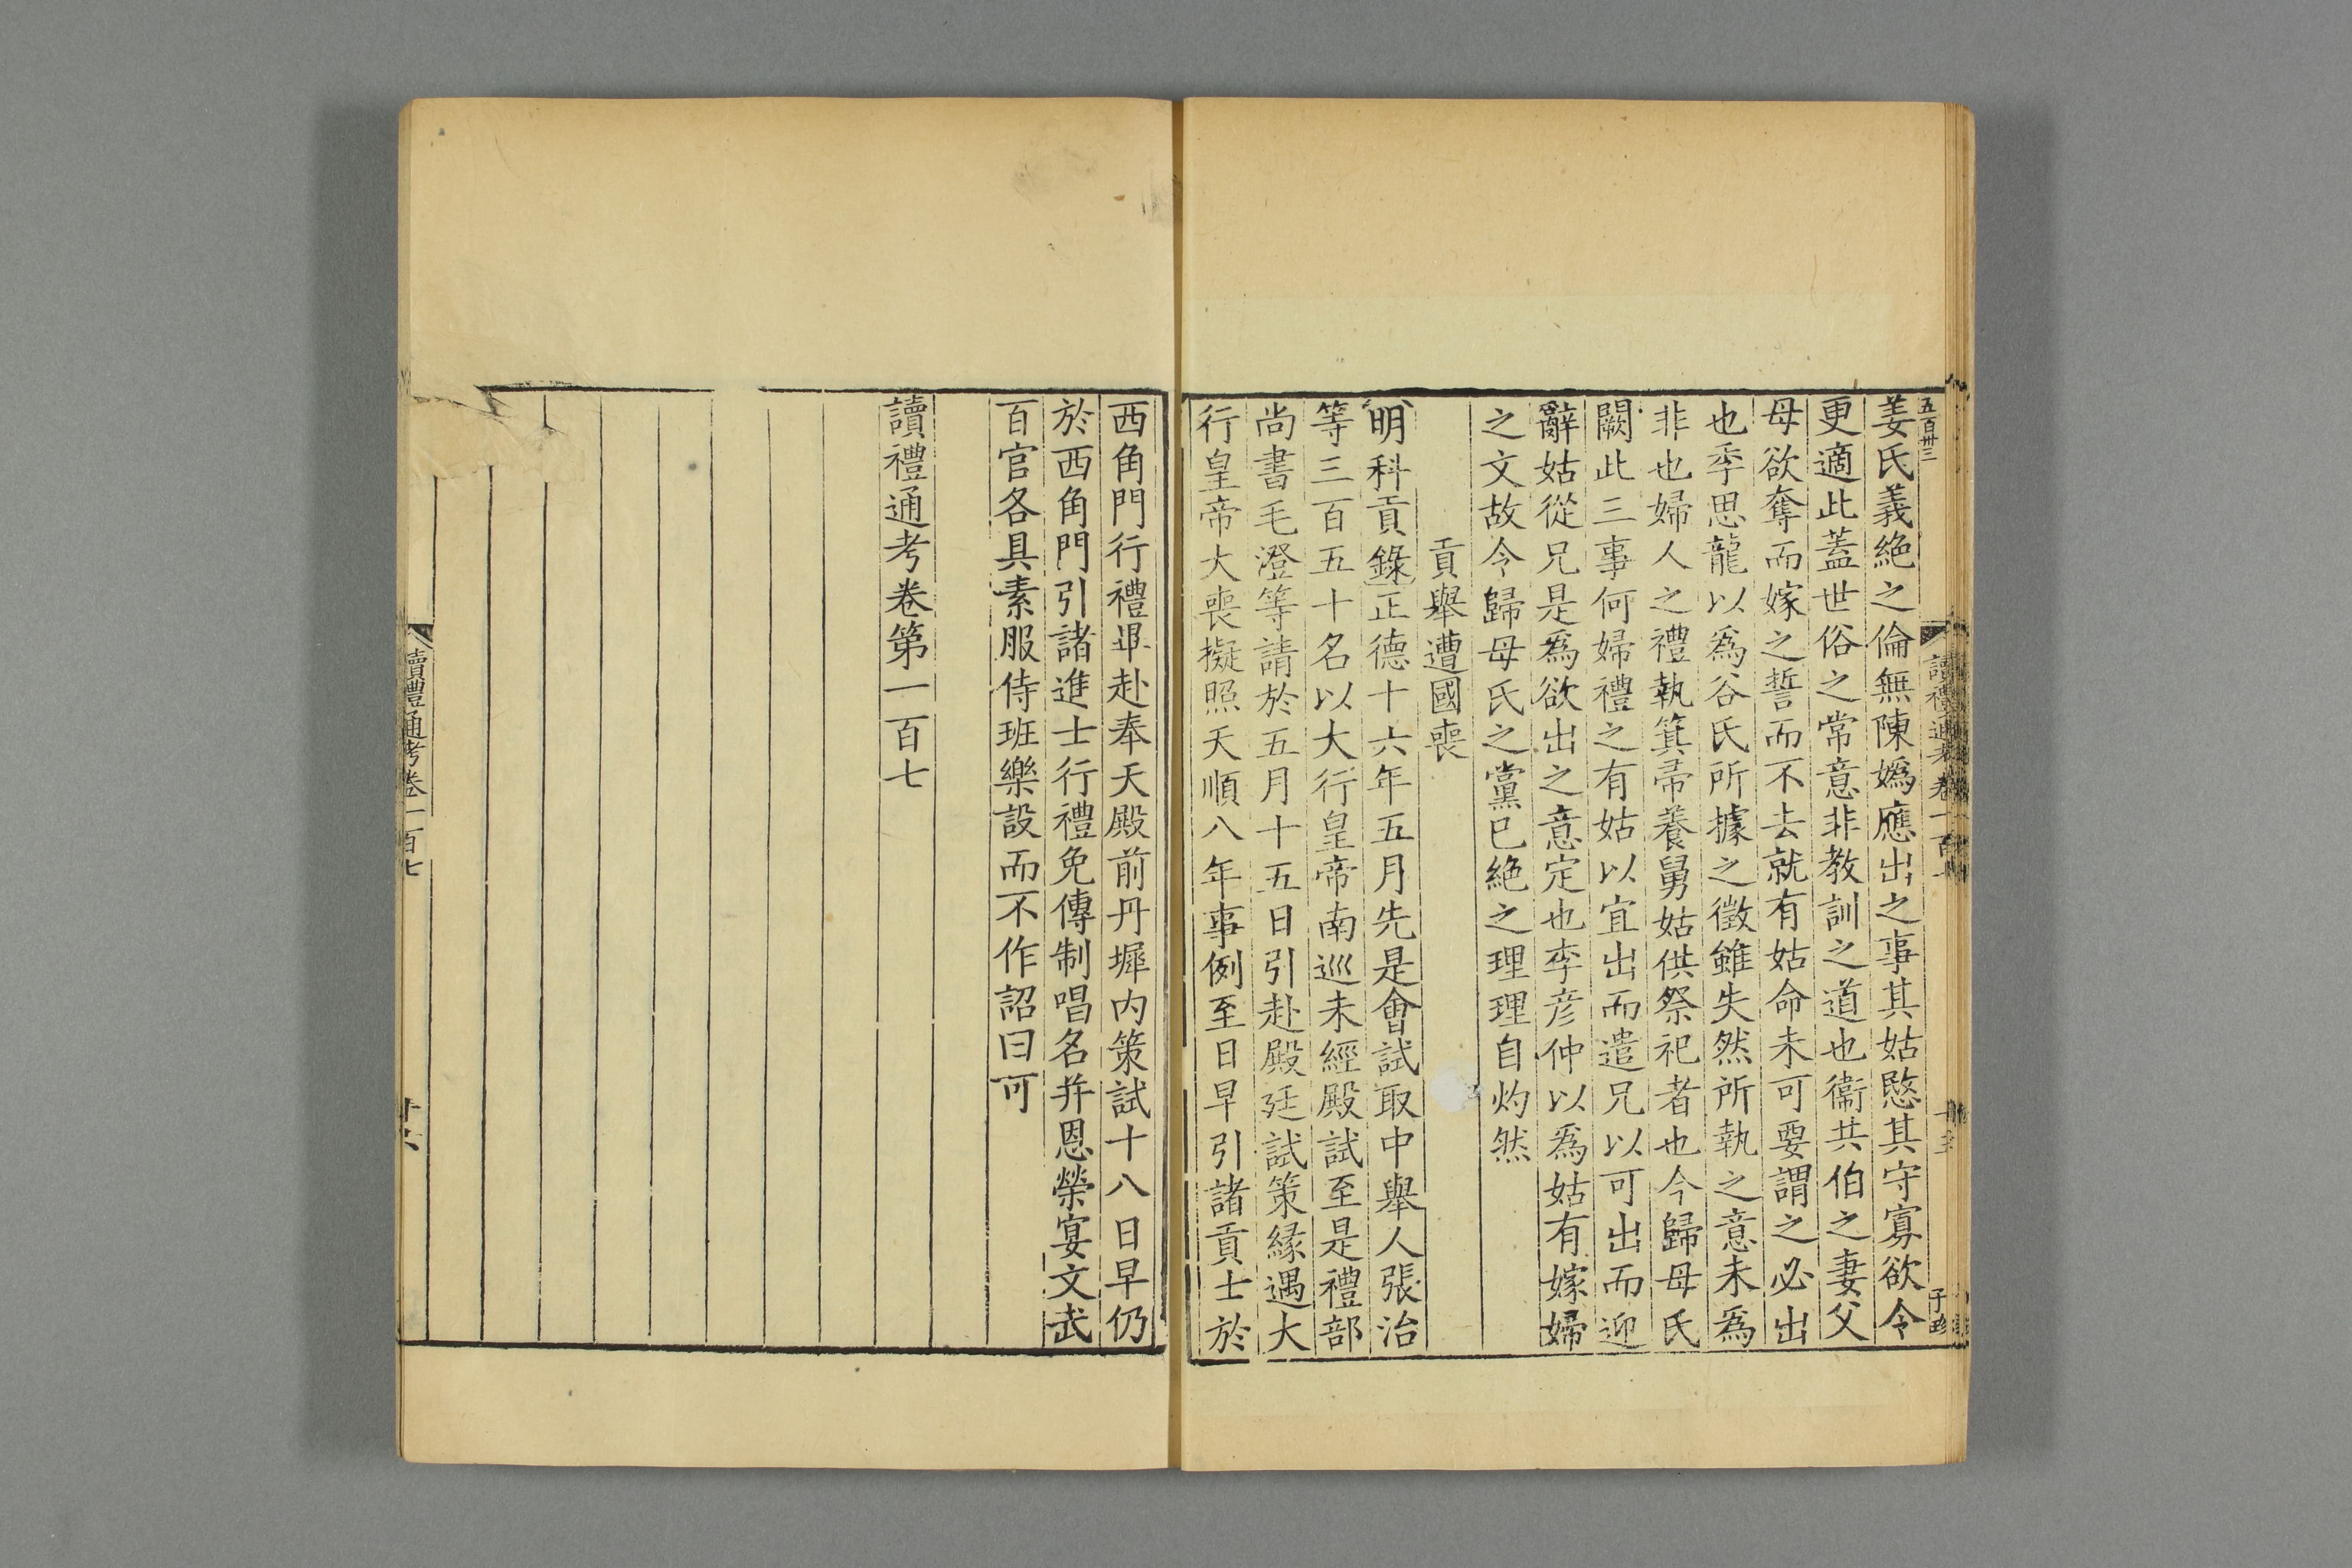 五百卅三
姜氏義絶之倫無陳嬀應出之事其姑愍其守寡欲令
更適此蓋世俗之常意非教訓之道也衞共伯之妻父
母欲奪而嫁之誓而不去就有姑命未可要謂之必出
也季思龍以爲谷氏所據之徵雖失然所執之意未爲
非也婦人之禮執箕帚養舅姑供祭祀者也今歸母氏
闕此三事何婦禮之有姑以宜出而遣兄以可出而迎
辭姑從兄是爲欲出之意定也李彦仲以爲姑有嫁婦
之文故今歸母氏之黨已絶之理理自灼然
貢舉遭國喪
明科貢錄正德十六年五月先是會試取中舉人張治
等三百五十名以大行皇帝南巡未經殿試至是禮部
尚書毛澄等請於五月十五日引赴殿廷試策緣遇大
行皇帝大喪擬照天順八年事例至日早引諸貢士於
西角門行禮退赴奉天殿前丹墀内策試十八日早仍
於西角門引諸進士行禮免傳制唱名并恩榮宴文武
百官各具素服侍班樂設而不作詔曰可
讀禮通考卷第一百七
讀禮通考卷一百七